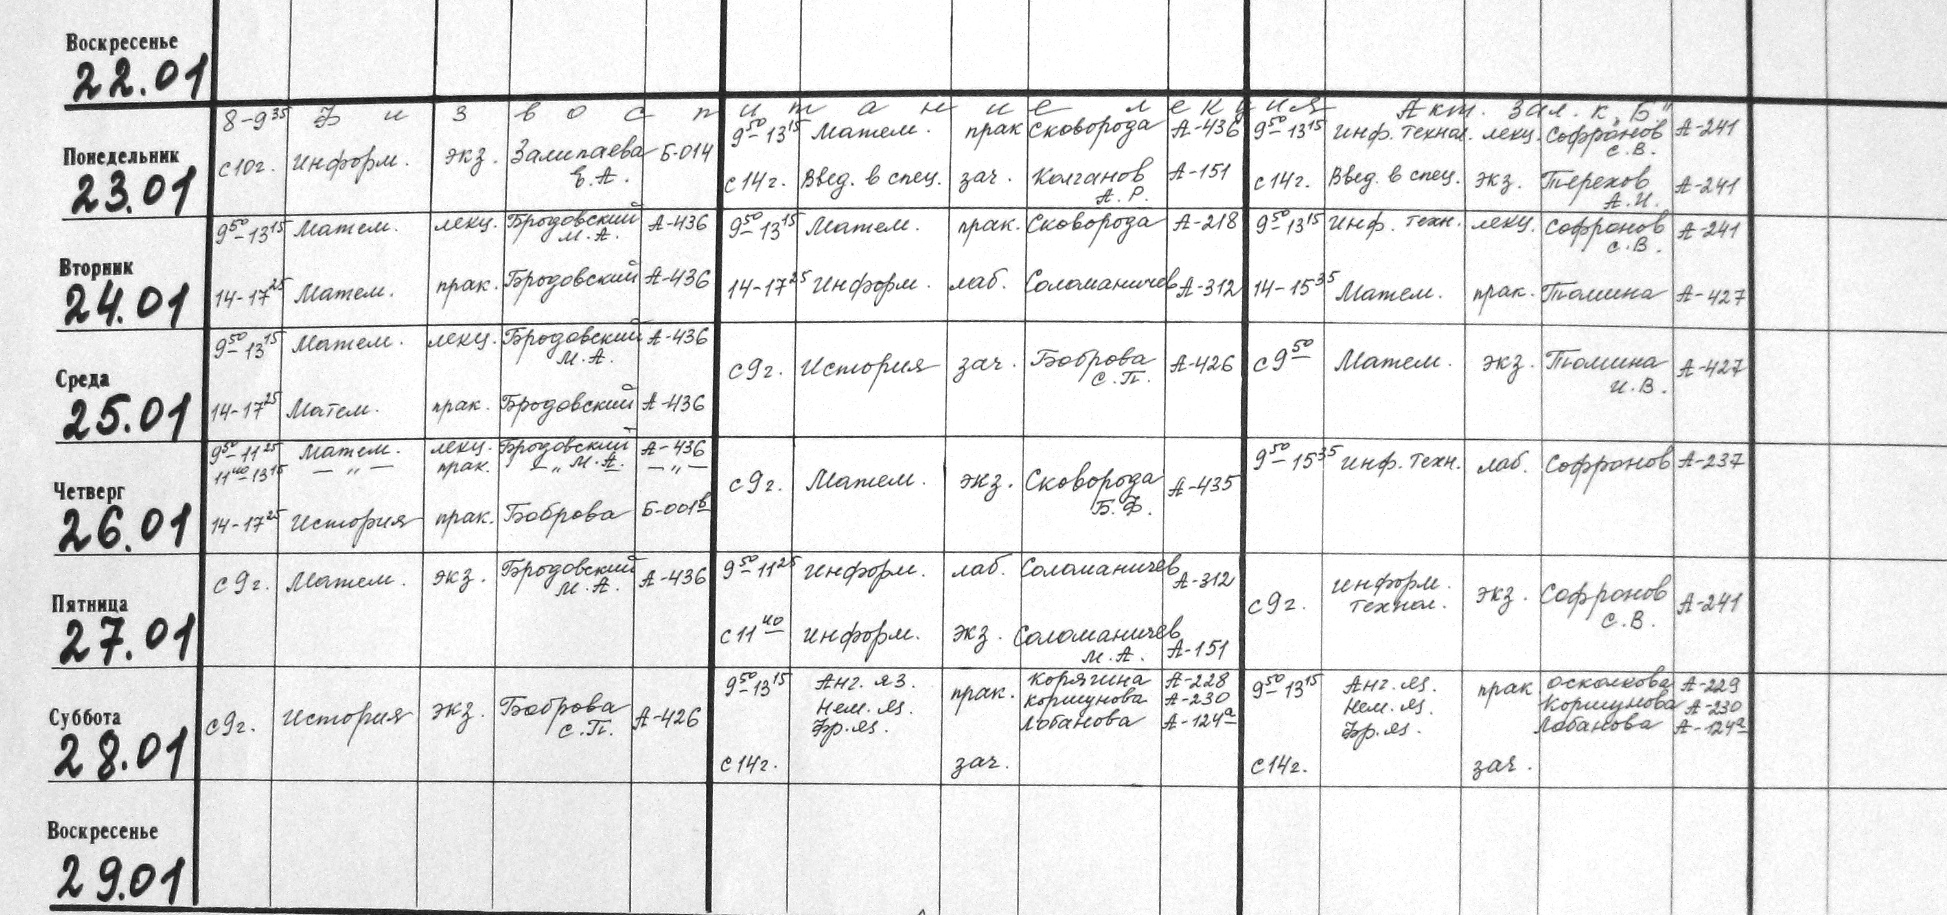 Воскресенье
22.01
8-9³⁵ Физвоспитание лекция Акт. зал. к. „Б"
Понедельник
23.01
с 10 г. Информ. экз. Залипаева Б-014
Е.А.
9⁵⁰-13¹⁵ Матем. прак Сковорода А-436
с 14 г. Введ. в спец. зач. Колганов А-151
А.Р.
9⁵⁰-13¹⁵ Инф. технол. лекц. Софронов А-241
С.В.
с 14 г. Введ. в спец. экз. Терехов А-241
А.И.
Вторник
24.01
9⁵⁰-13¹⁵ Матем. лекц. Бродовский А-436
М.А.
14-17²⁵ Матем. прак. Бродовский А-436
9⁵⁰-13¹⁵ Матем. прак. Сковорода А-218
14-17²⁵ Информ. лаб. Соломаничев А-312
9⁵⁰-13¹⁵ Инф. техн. лекц. Софронов А-241
С.В.
14-15³⁵ Матем. прак. Тюмина А-427
Среда
25.01
9⁵⁰-13¹⁵ Матем. лекц. Бродовский А-436
М.А.
14-17²⁵ Матем. прак. Бродовский А-436
с 9 г. История зач. Боброва А-426
С.П.
с 9⁵⁰ Матем. экз. Тюмина А-427
И.В.
Четверг
26.01
9⁵⁰-11²⁵ Матем. лекц. Бродовский А-436
11⁴⁰-13¹⁵ — „ — прак. — „ М.А. — „ —
14-17²⁵ История прак. Боброва Б-001ᵇ
с 9 г. Матем. экз. Сковорода А-435
Б.Ф.
9⁵⁰-15³⁵ Инф. техн. лаб. Софронов А-237
Пятница
27.01
с 9 г. Матем. экз. Бродовский А-436
М.А.
9⁵⁰-11²⁵ Информ. лаб. Соломаничев А-312
с 11⁴⁰ Информ. экз. Соломаничев А-151
М.А.
с 9 г. Информ. технол. экз. Софронов А-241
С.В.
Суббота
28.01
с 9 г. История экз. Боброва А-426
С.П.
9⁵⁰-13¹⁵ Анг. яз. прак. Корягина А-228
Нем. яз. Коршунова А-230
Фр. яз. Лобанова А-124ᵃ
с 14 г. зач.
9⁵⁰-13¹⁵ Анг. яз. прак Осколкова А-229
Нем. яз. Коршунова А-230
Фр. яз. Лобанова А-124ᵃ
с 14 г. зач.
Воскресенье
29.01